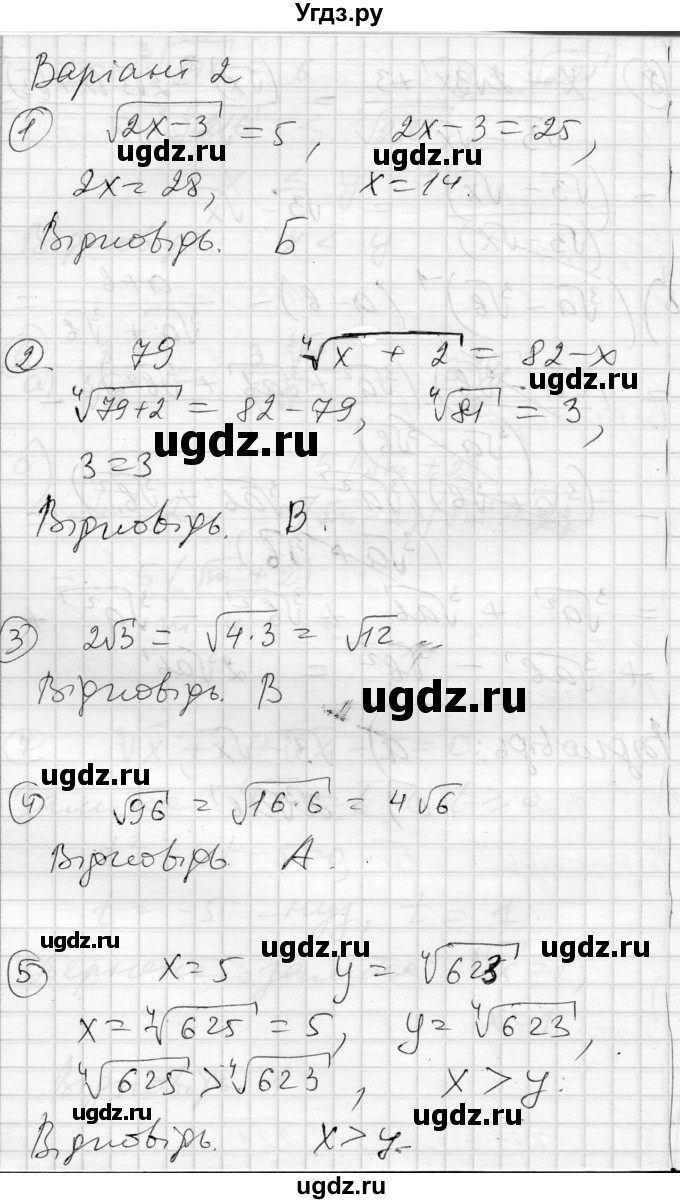 Угдз.ру
Варіант 2
① √(2x−3) = 5, 2x−3=25,
ugdz.ru ugdz.ru
2x=28, x=14.
Відповідь. Б
② 79 ⁴√(x + 2) = 82−x
ugdz.ru
⁴√(79+2) = 82−79, ⁴√81 = 3,
ugdz.ru
3=3
Відповідь. В.
③ 2√3 = √(4·3) = √12
Відповідь. В
ugdz.ru
ugdz.ru
④ √96 = √(16·6) = 4√6
Відповідь. А.
ugdz.ru ugdz.ru ugdz.ru
⑤ x=5 y = ⁴√623
x=⁴√625 = 5, y=⁴√623,
⁴√625 > ⁴√623, x>y.
ugdz.ru ugdz.ru
Відповідь. x>y.
ugdz.ru